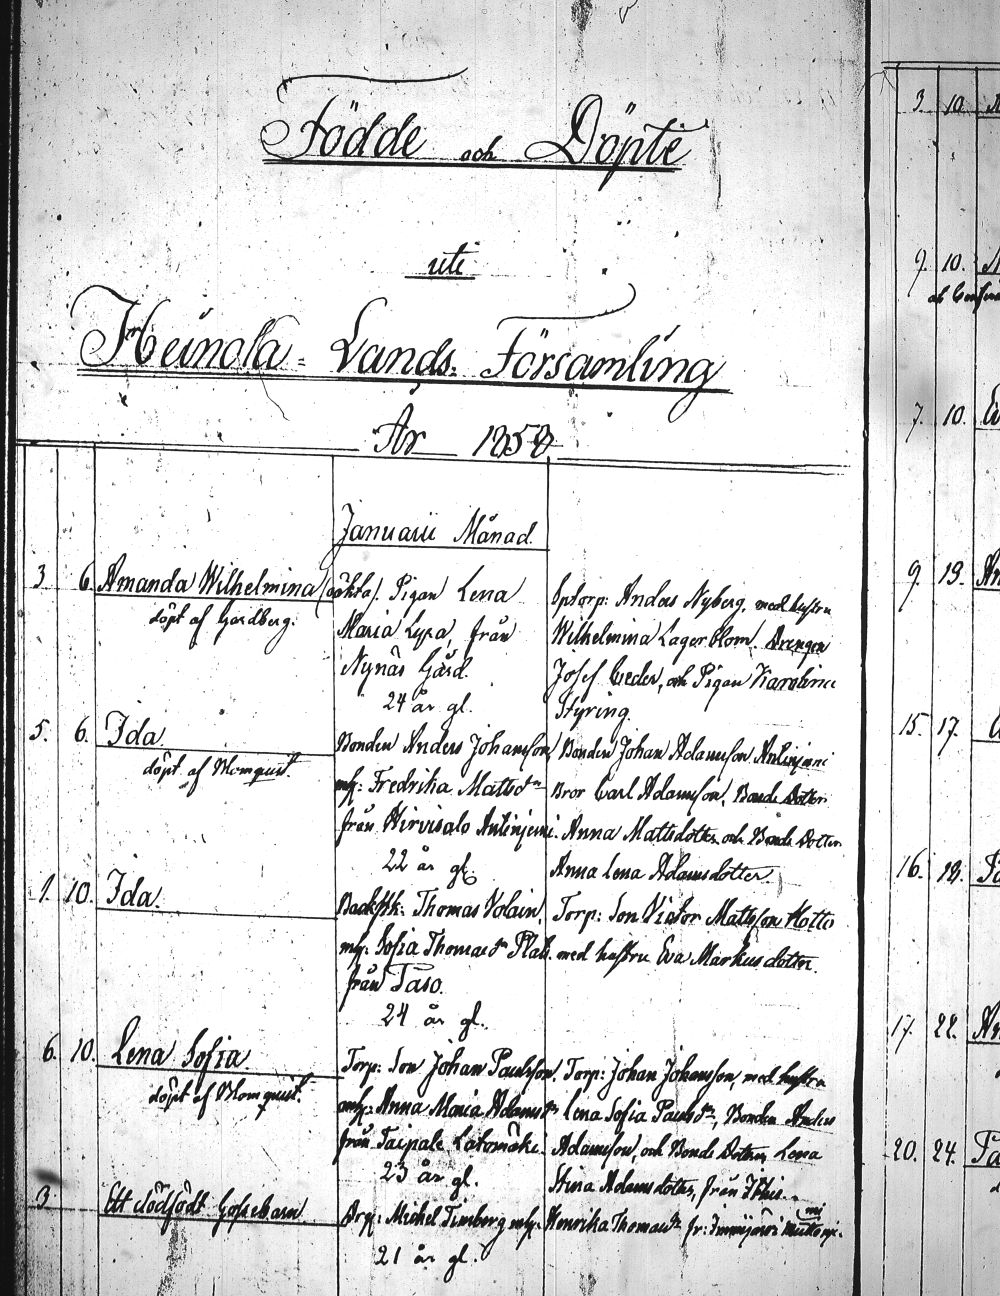 Födde och Döpte
uti
Heinola Lands Församling
År 1858
Januarii Månad
3 6 Amanda Wilhelmina (oäkta) Pigan Lena
döpt af Gardberg.
Maria Lyra, från
Nynäs Gård.
24 år gl.
Sptorp: Anders Nyberg, med hustru
Wilhelmina Lagerblom. Drengen
Josef Ceder, och Pigan Karolina
Styring.
5. 6. Ida
döpt af Blomquist.
Bonden Anders Johansson,
mh: Fredrika Matsdtr
från Hirvisalo Antinjemi.
22 år gl.
Bonden Johan Adamsson Antinjemi
Bror Carl Adamsson, Bonde Dotter
Anna Mattsdotter och Bonde Dotter
Anna Lena Adamsdotter.
1. 10. Ida.
Thomas
mh: Sofia Thomasdr
från Taso.
24 år gl.
Torp: Son Victor Mattsson
med hustru Eva Markusdotter.
6. 10. Lena Sofia.
döpt af Blomquist.
Torp: Son Johan Paulsson.
mh: Anna Maria Adamsdr
från Taipale
23 år gl.
Torp: Johan Johansson, med hustru
Lena Sofia Paulsdr, Bonden Anders
Adamsson, och Bonde Dottern Lena
Stina Adamsdotter, från
3 Ett dödfödt Gossebarn
Michel Timberg mh: Henrika Thomasdr fr:
21 år gl.
3. 10.
9. 10.
7. 10.
9. 19.
15. 17.
16. 18.
17. 22.
20. 24.